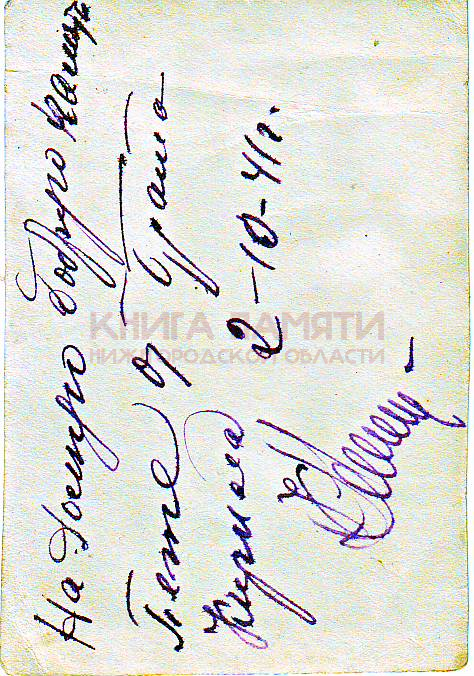 На Долгую Добрую память
Пете от брата
Кирила 2-10-41г.
КНИГА ПАМЯТИ
НИЖЕГОРОДСКОЙ ОБЛАСТИ